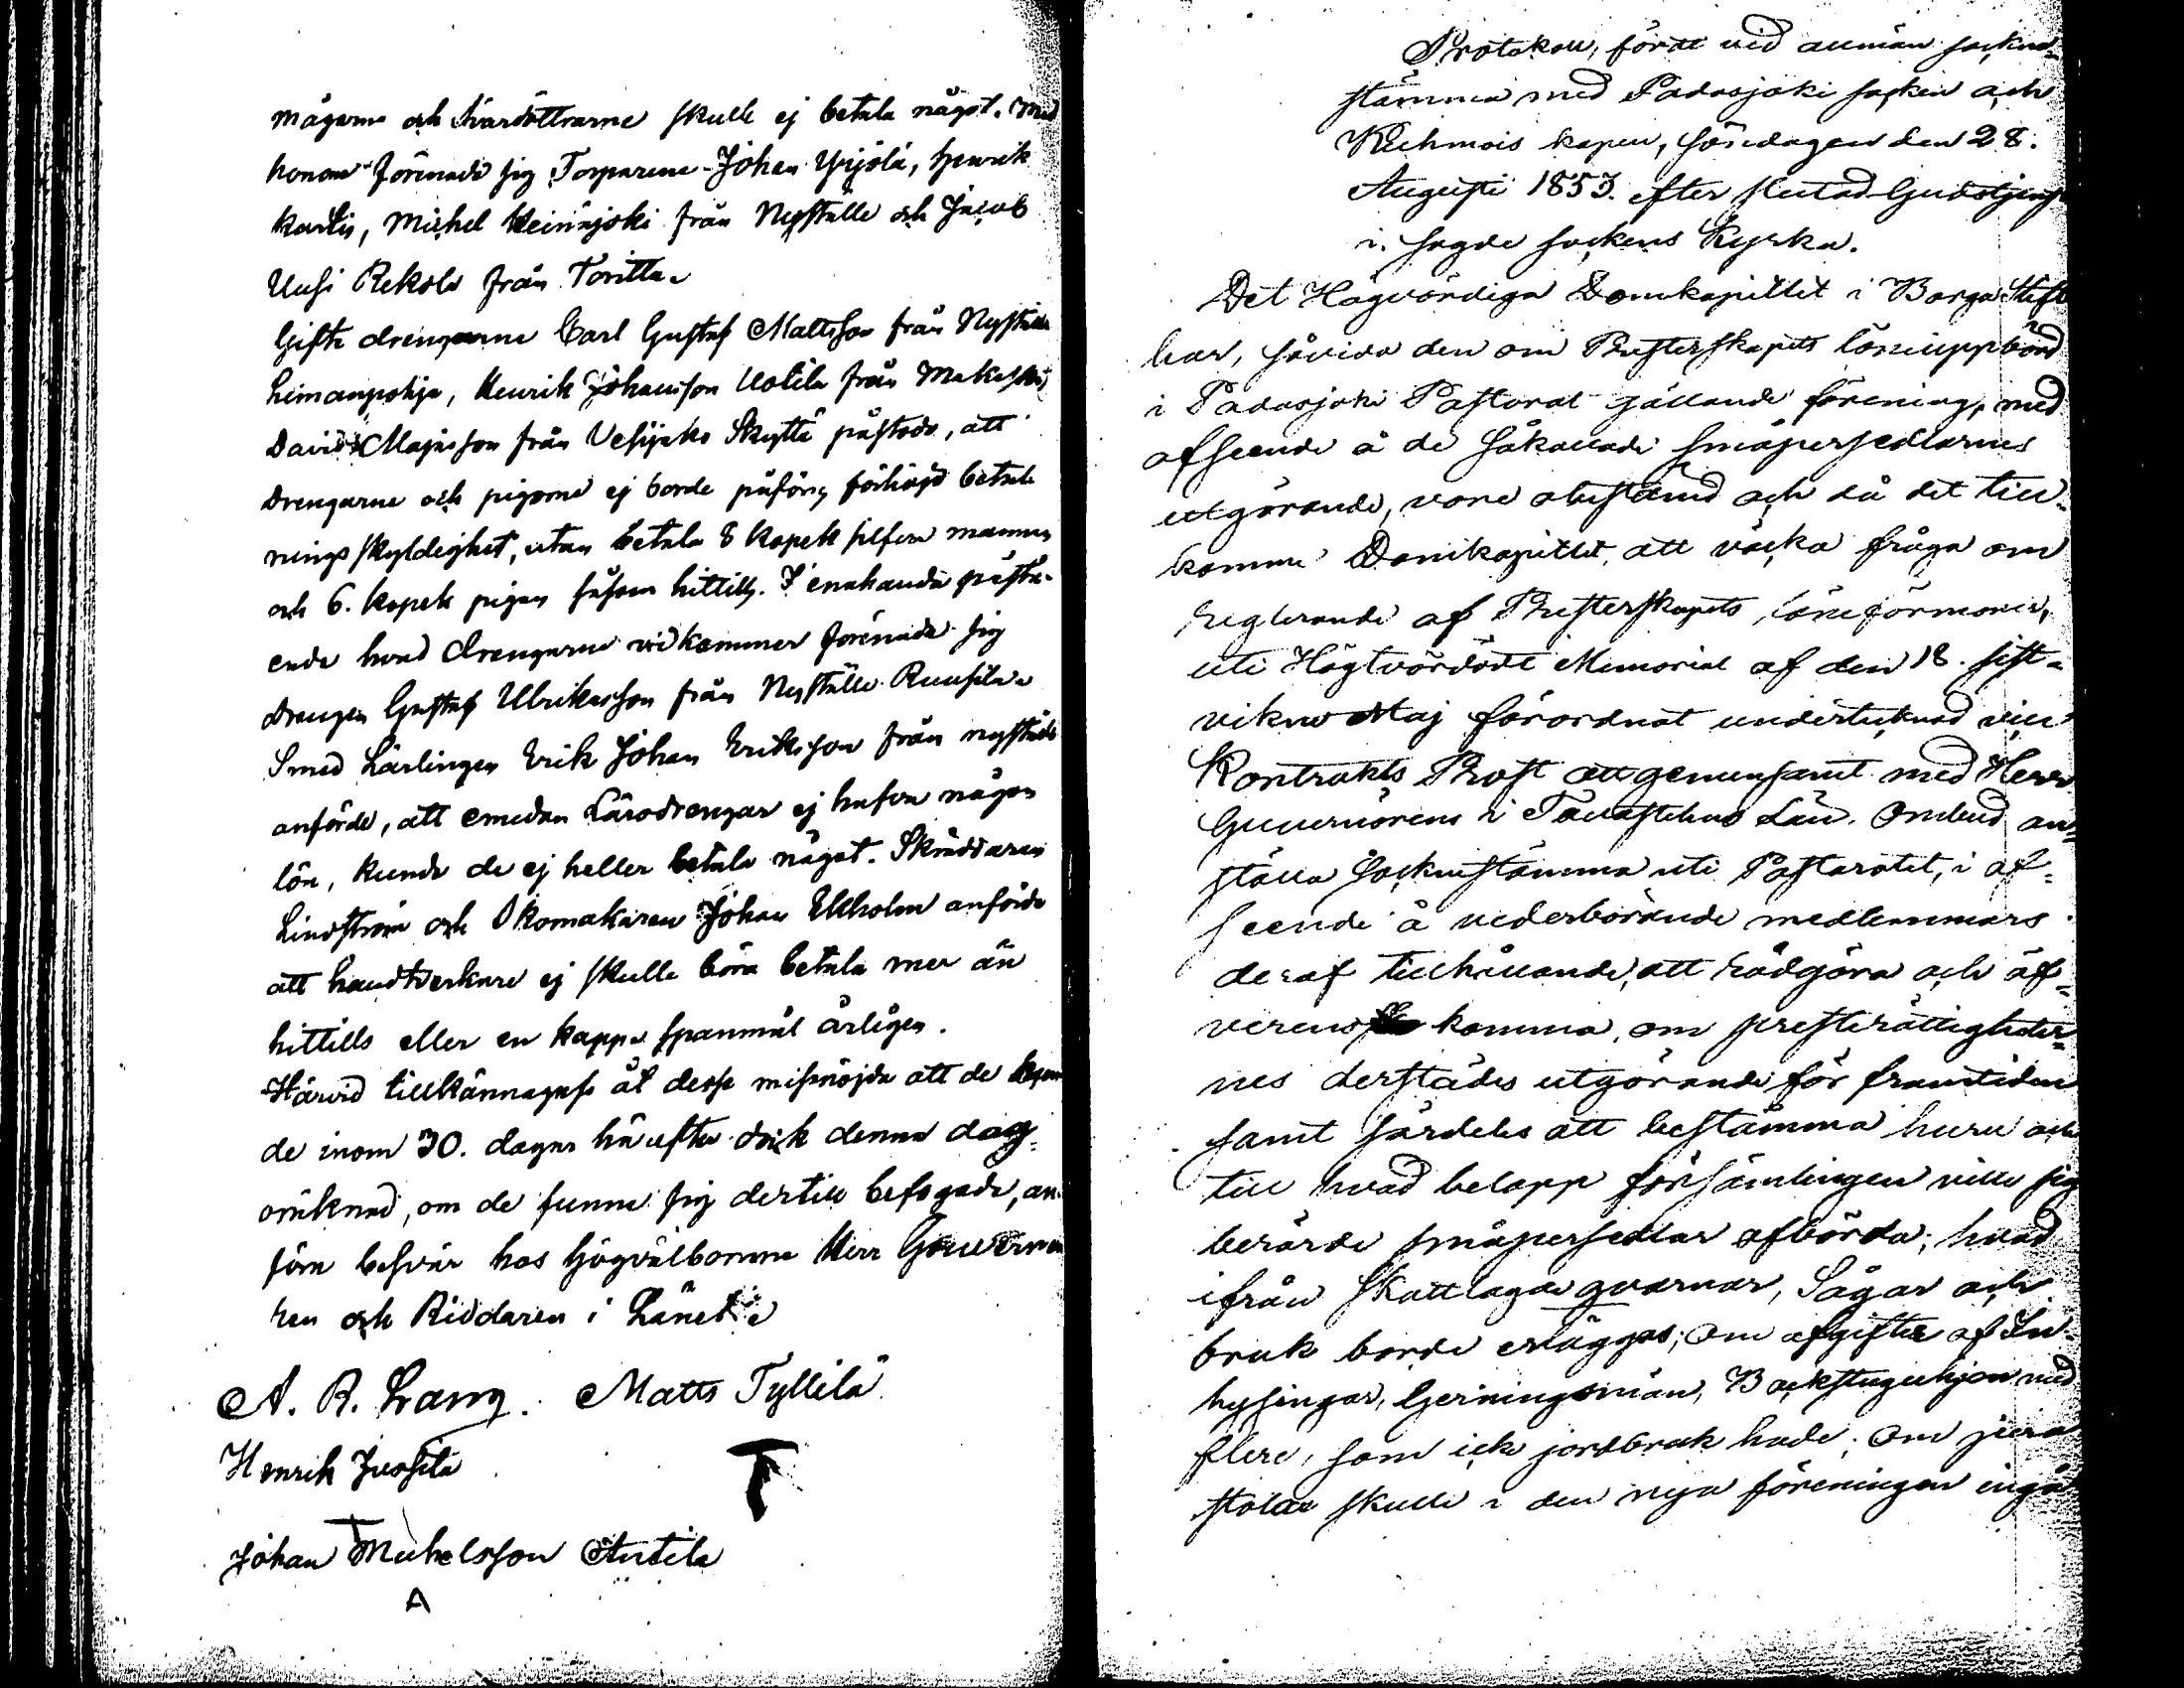 mågarne och svärdöttrarne skulle ej betala något. Med
honom förenade sig Torparene Johan Yrjölä, Henrik
Karlis, Michel Heinäjoki från Nyställe och Jacob
Uusi Rekola från Toritta.
Gifte drengarne Carl Gustaf Mattsson från Nyställe
Henrik Johansson Uotila från
David Majasson från Vesijako Skyttä påstodo, att
drengarne och pigorna ej borde påföras förhöjd betal-
ningsskyldighet, utan betala 8 kopek silfver mannen
och 6. kopek pigan såsom hittills. I enahanda påstå-
ende hvad drengarne vidkommer förenade sig
drengen Gustaf Ulrikasson från Nyställe Ruusila.
Smed Lärlingen Erik Johan Eriksson från nyställe
anförde, att emedan Lärodrengar ej hafva någon
lön, kunde de ej heller betala något. Skräddaren
Lindström och Skomakaren Johan Ekholm anförde
att handtverkare ej skulle böra betala mer än
hittills eller en kappe spanmål årligen.
Härvid tillkännagafs åt desse missnöjde att de
de inom 30. dagar härefter dock denna dag
oräknad, om de funne sig dertill befogade, an-
föra besvär hos Högvälborne Herr Gouvernö
ren och Riddaren i Länet.
A. R. Lang. Matts Tyllilä
Henrik Jussila
Johan Michelsson Anttila
A
Protokoll, fördt vid allmän sockne-
stämma med Padasjoki socken och
Kuhmois kapell, söndagen den 28.
Augusti 1853. efter slutad Gudstjenst
i sagde sockens Kyrka.
Det Högvördiga Domkapitlet i Borgå Stift
har, såvida den om Presterskapets löneuppbörd
i Padasjoki Pastorat gällande förening, med
afseende å de såkallade småpersedlarnes
utgörande, vore obestämd och då det till-
komme Domkapitlet, att väcka fråga om
reglerande af Presterskapets löneförmoner,
uti Högtvördadt Memorial af den 18. sist-
vikne Maj förordnat undertecknad
Kontrakts Prost att gemensamt med Herr
Guvernörens i Tavastehus Län. Ombud an-
ställa Socknestämma uti Pastoratet, i af-
seende å vederbörande medlemmars
deraf tillhållande, att rådgöra och öf-
verens komma, om presterättigheter-
nes derstädes utgörande för framtiden
samt särdeles att bestämma huru och
till hvad belopp församlingen ville sig
berörde småpersedlar afbörda; hvad
ifrån Skattlagde qvarnar, Sågar och
bruk borde erläggas; Om afgifter af In-
hysingar, Gerningsmän, Backstuguhjon med
flere, som icke jordbruk hade; Om
skulle i den nya föreningen ingå